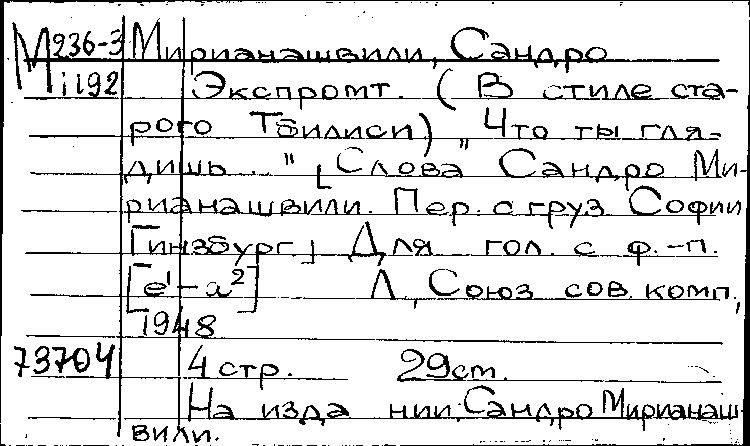 М 236-3 Мирианашвили, Сандро
Mi192 Экспромт. (В стиле ста-
рого Тбилиси) „Что ты гля-
дишь..." [Слова Сандро Ми-
рианашвили. Пер. с груз Софии
Гинзбург.] Для гол. с ф.-п.
[e¹-a²] Л, Союз сов. комп.,
1948
73704 4 стр. 29cm.
На изда нии: Сандро Мирианаш-
вили.